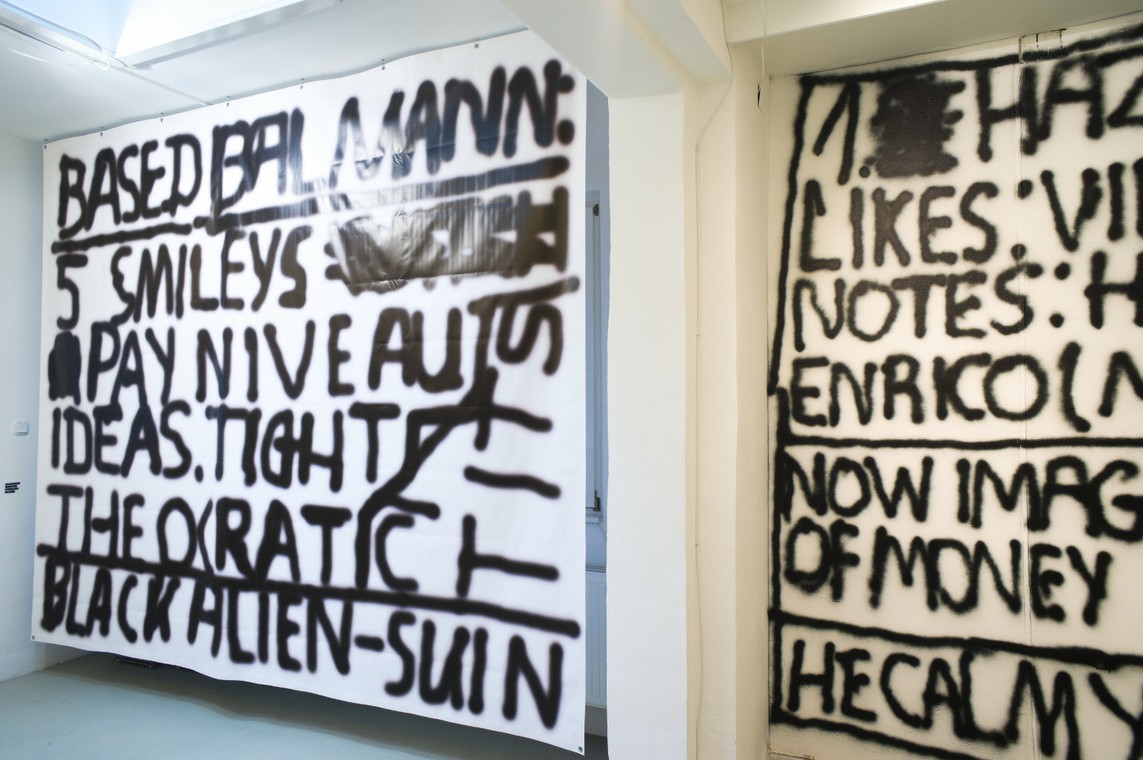 BASED BAL MANN:
5 SMILEYS
PAY NIVEAUTS
IDEAS. TIGHT
THEOCRATIC
BLACK ALIEN-SUIN
TIT
1. HAZ
LIKES: VI
NOTES: H
ENRICO (
NOW IMAG
OF MONEY
HE CALMY